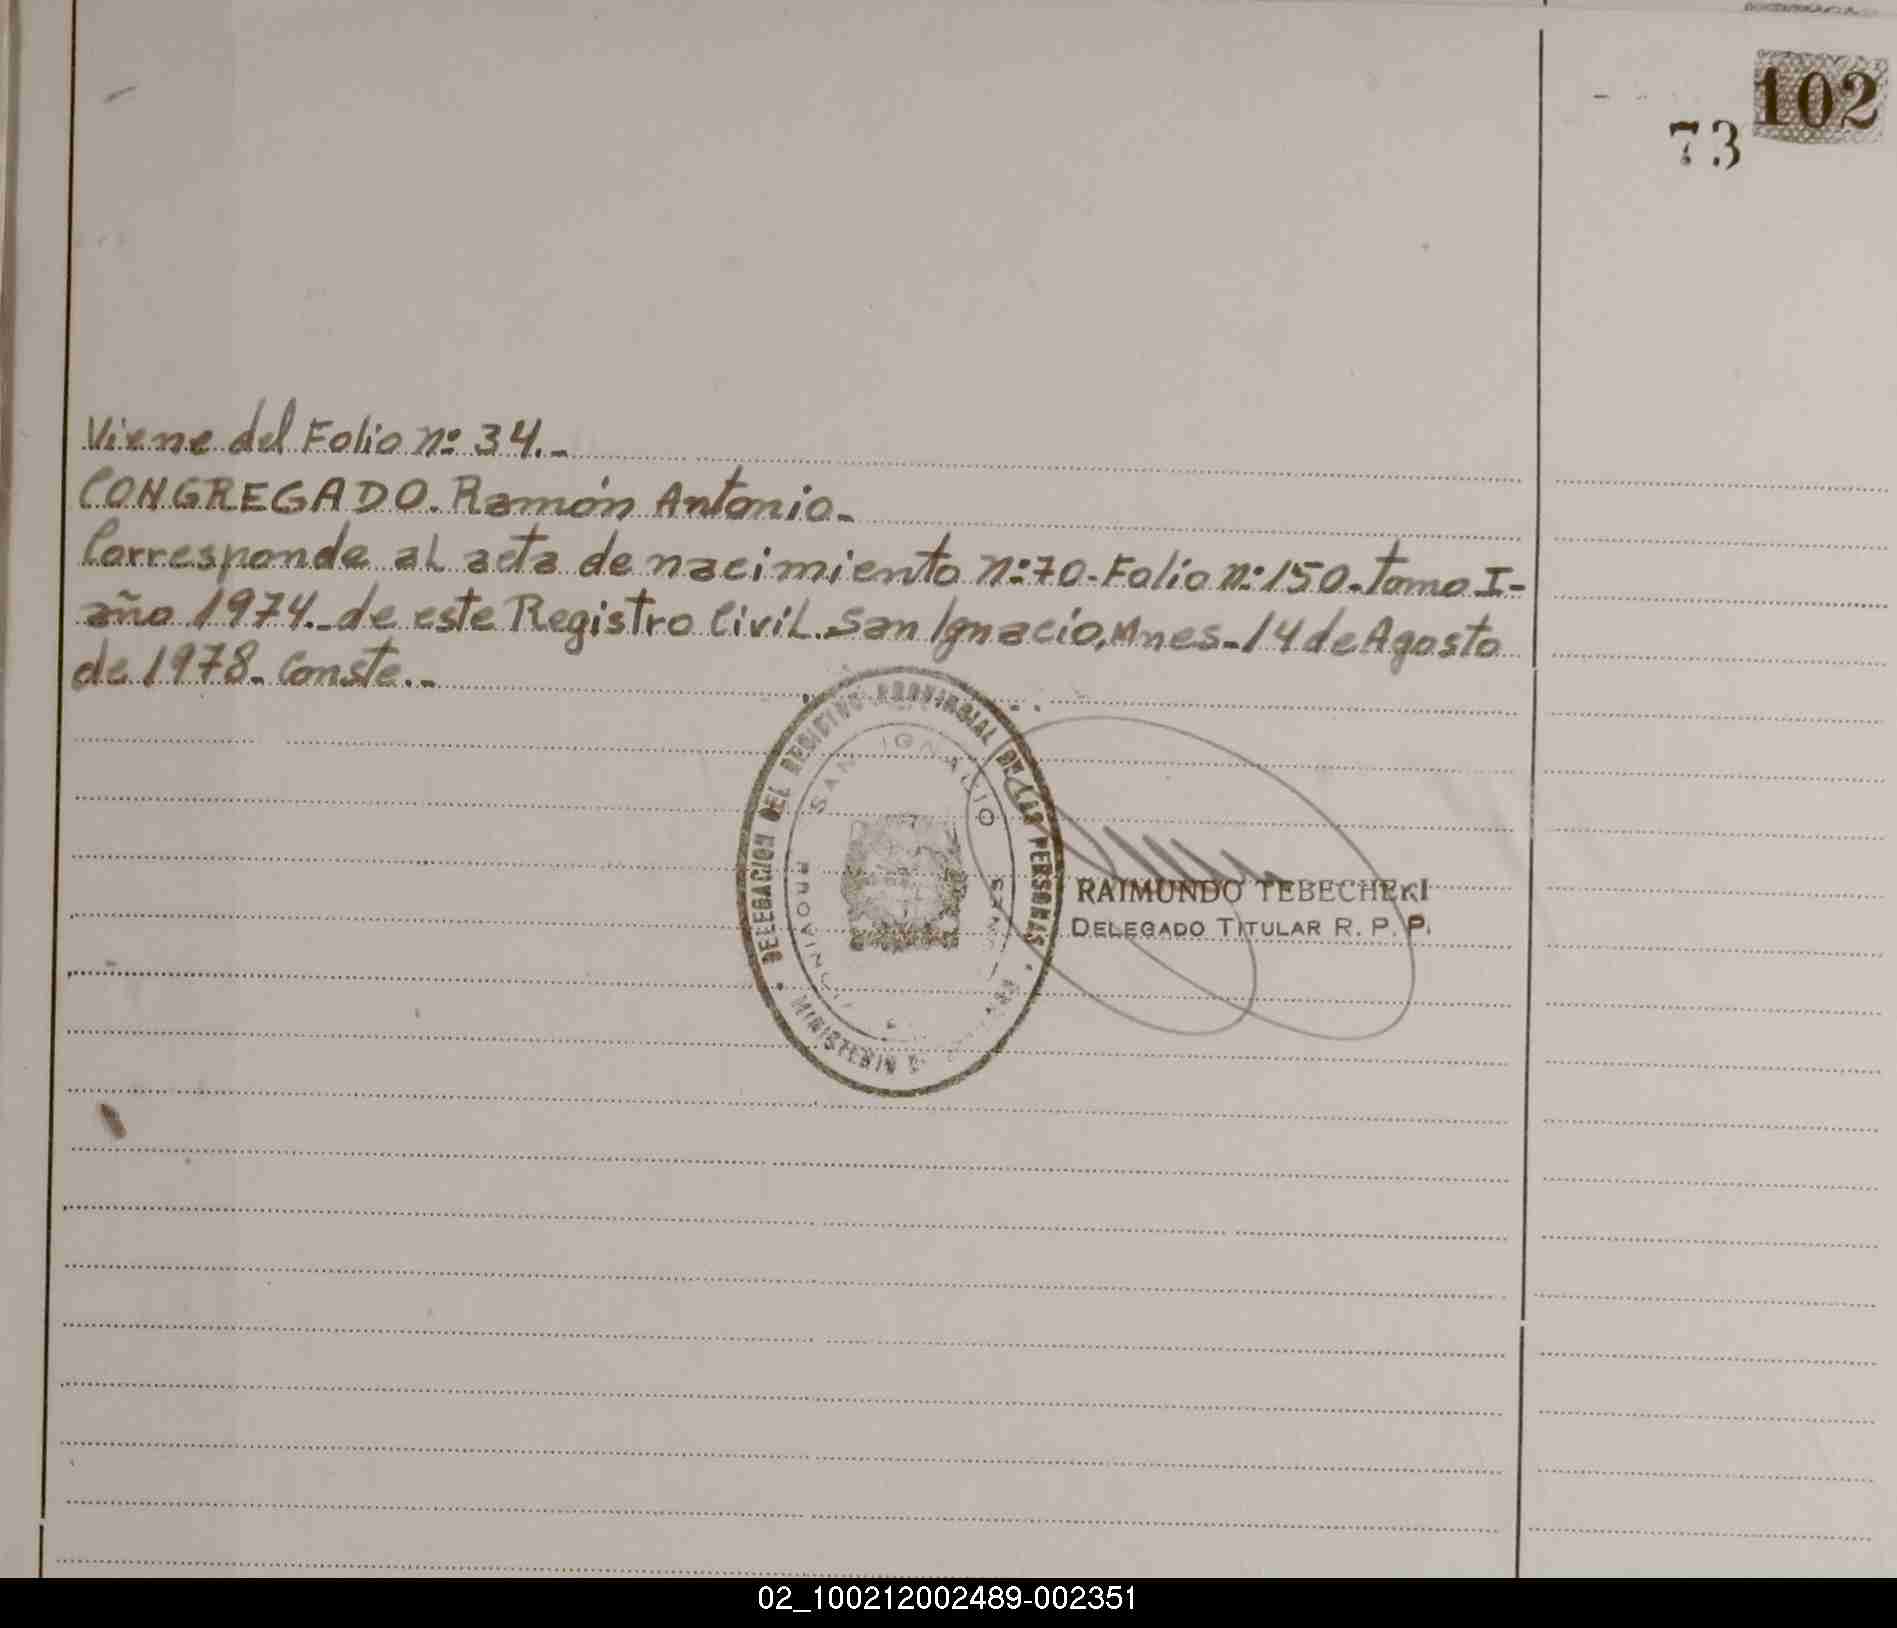 102
73
Viene del Folio nº 34.-
CONGREGADO. Ramón Antonio.-
Corresponde al acta de nacimiento nº 70. Folio nº 150. Tomo I-
año 1974.- de este Registro Civil. San Ignacio, Mnes.- 14 de Agosto
de 1978. Conste.-
DELEGACION DEL REGISTRO PROVINCIAL DE LAS PERSONAS
SAN IGNACIO
MINISTERIO
RAIMUNDO TEBECHERI
DELEGADO TITULAR R. P. P.
02_100212002489-002351